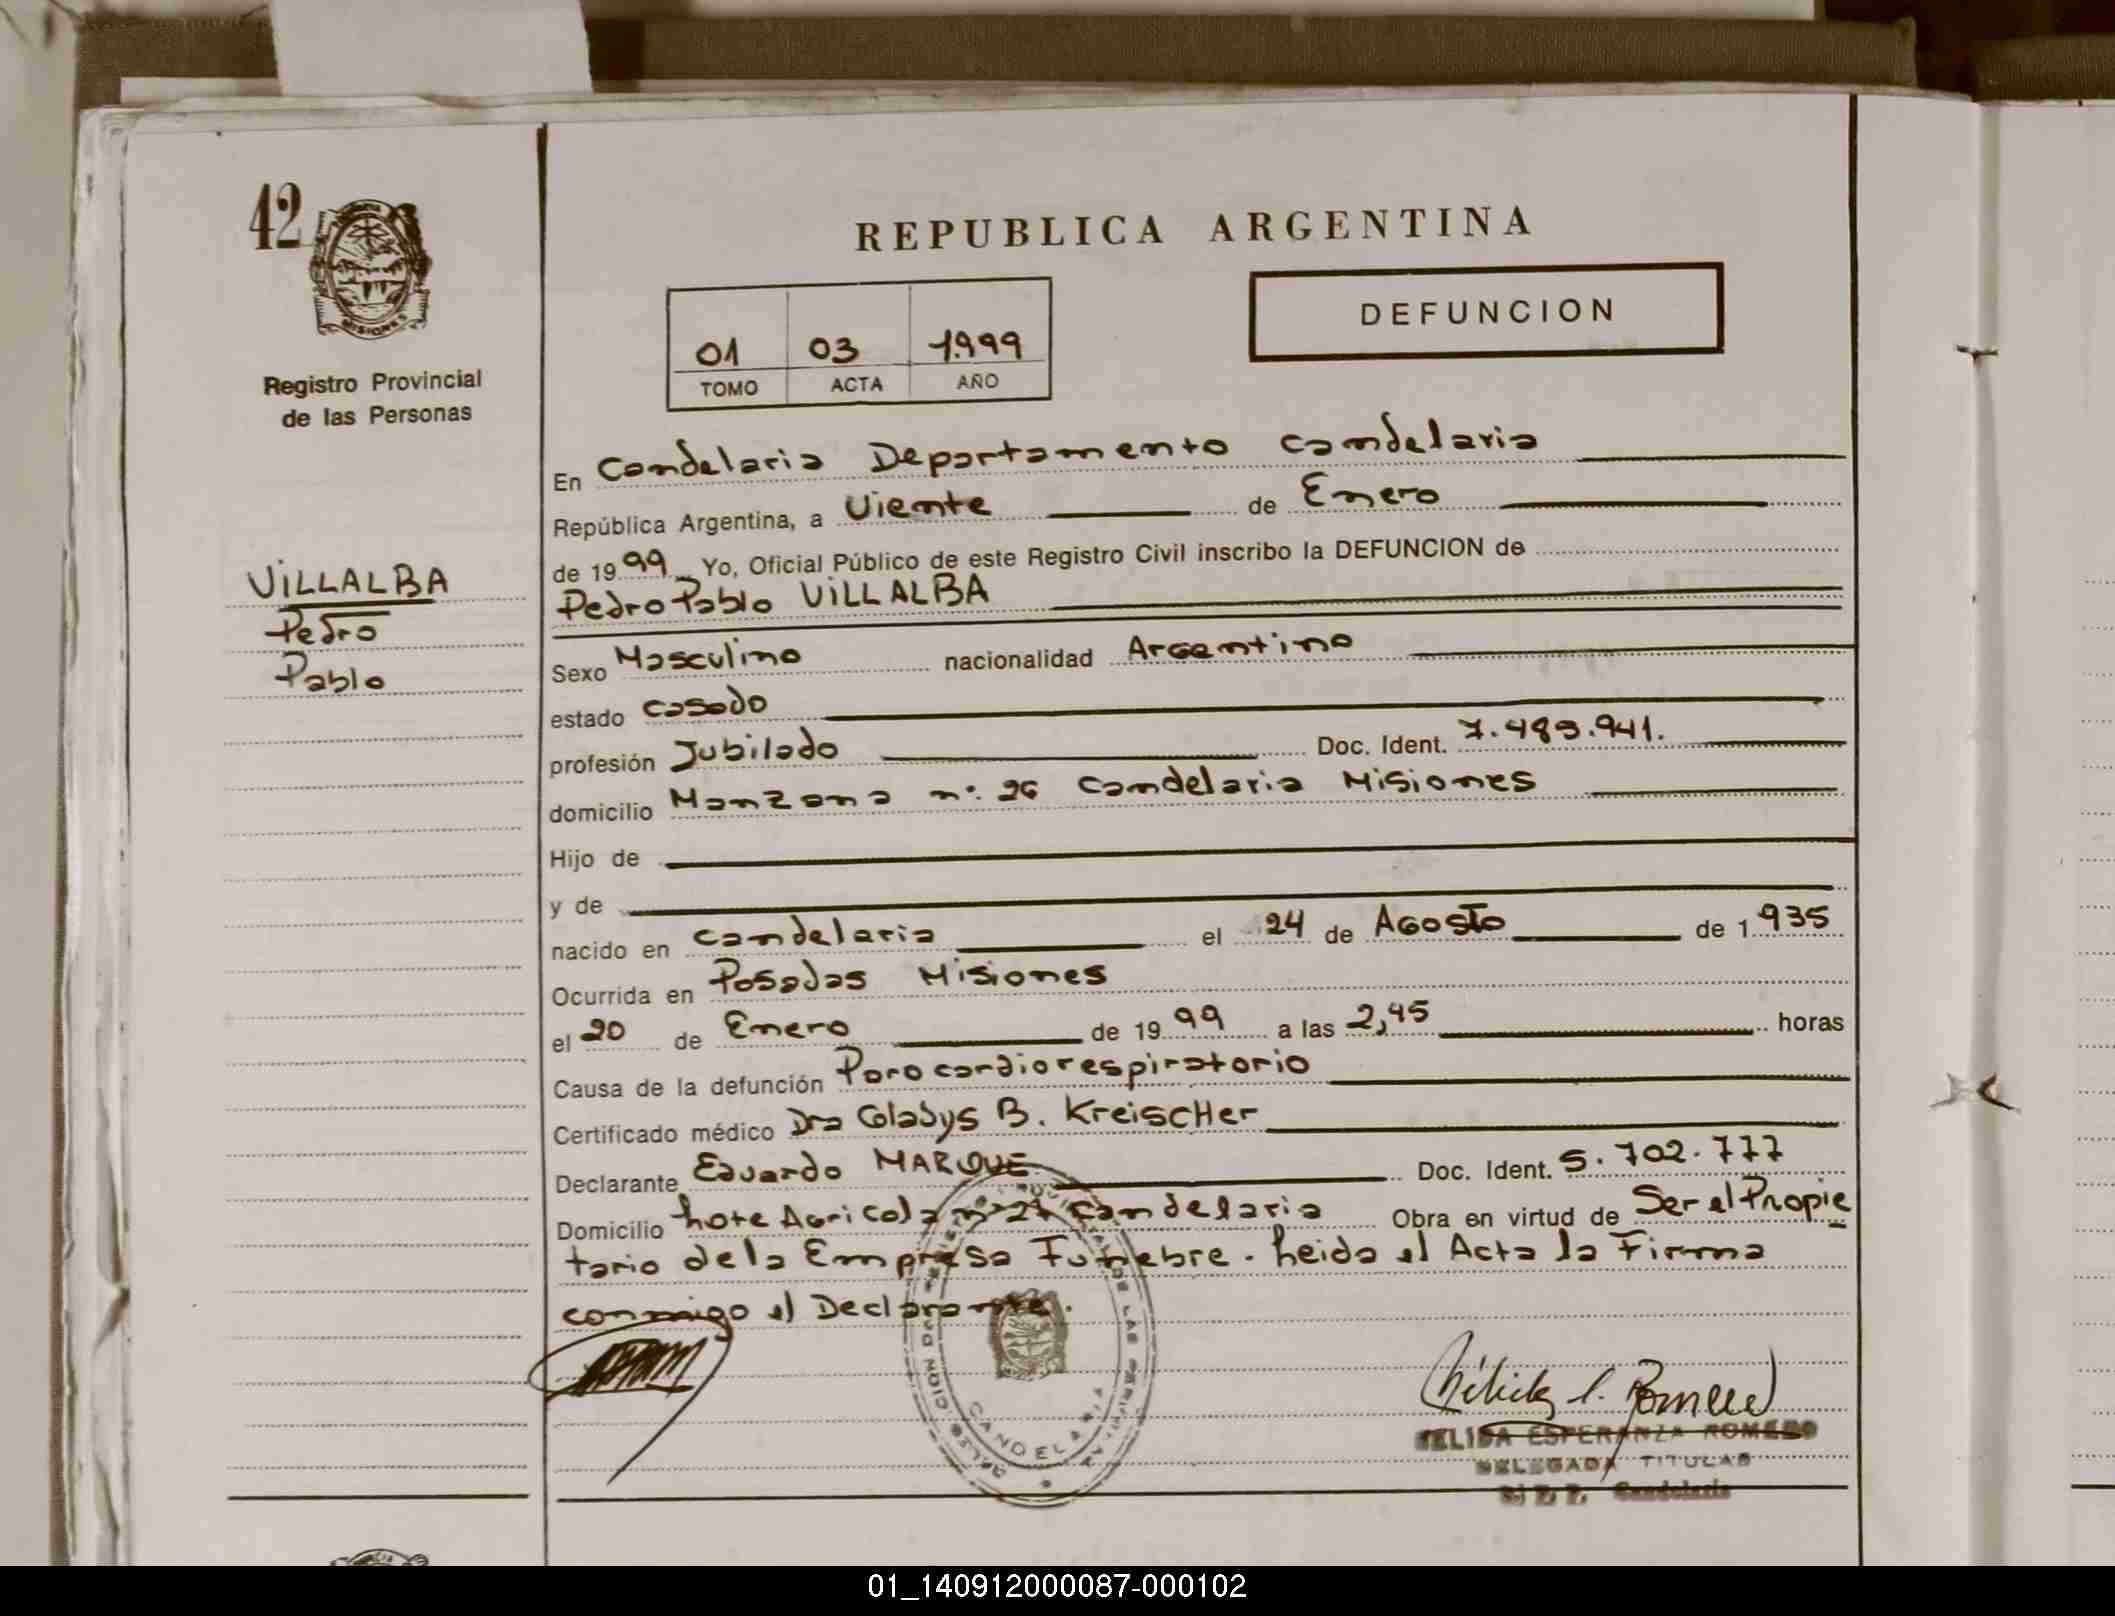 42
MISIONES
Registro Provincial
de las Personas
VILLALBA
Pedro
Pablo
REPUBLICA ARGENTINA
01 03 1.999
TOMO ACTA AÑO
DEFUNCION
En Candelaria Departamento Candelaria
República Argentina, a Viente de Enero
de 19 99 Yo, Oficial Público de este Registro Civil inscribo la DEFUNCION de
Pedro Pablo VILLALBA
Sexo Masculino nacionalidad Argentino
estado casado
profesión Jubilado Doc. Ident. 7.483.941.
domicilio Manzana nº 26 Candelaria Misiones
Hijo de
y de
nacido en Candelaria el 24 de Agosto de 1 935
Ocurrida en Posadas Misiones
el 20 de Enero de 19 99 a las 2,45 horas
Causa de la defunción Paro cardiorespiratorio
Certificado médico Dra Gladys B. Kreischer
Declarante Eduardo MARQUE Doc. Ident. 5.702.777
Domicilio Lote Agricola nº 27 Candelaria Obra en virtud de Ser el Propie
tario de la Empresa Funebre. Leida el Acta la Firma
conmigo el Declarante.
CANDELARIA
FELISA ESPERANZA ROMERO
DELEGADA TITULAR
Candelaria
01_140912000087-000102